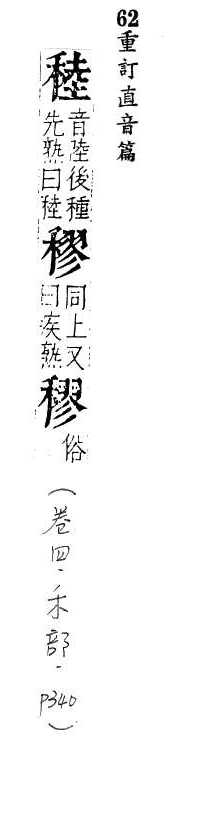 62重訂直音篇
稑音陸後種先熟曰稑穋同上又曰疾熟俗(卷四.禾部.p340)